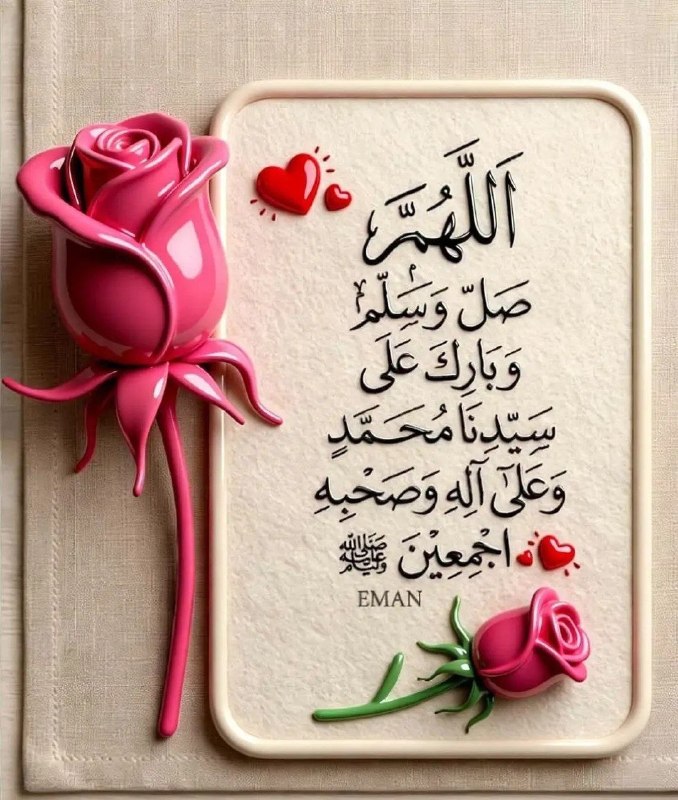 اَللّٰهُمَّ
صَلِّ وَسَلِّمْ
وَبَارِكَ عَلَى
سَيِّدِنَا مُحَمَّدٍ
وَعَلَىٰ آلِهِ وَصَحْبِهِ
اجْمِعِيْنَ ﷺ
EMAN